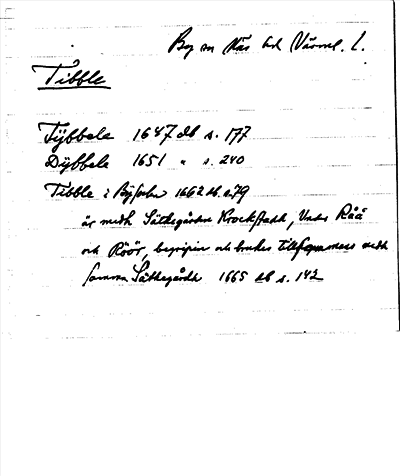 By sn Näs hd Värml. l.
Tibble
Tÿbbele 1647 db s. 177
Dÿbbele 1651 " s. 240
Tibble i Byſocken 1662 db. s. 79
är medh Sätthegården Krockstadh, Under Råå
och Röör, begripin och brukes tillsammans medh
samma Sätthegårdh 1665 db s. 142